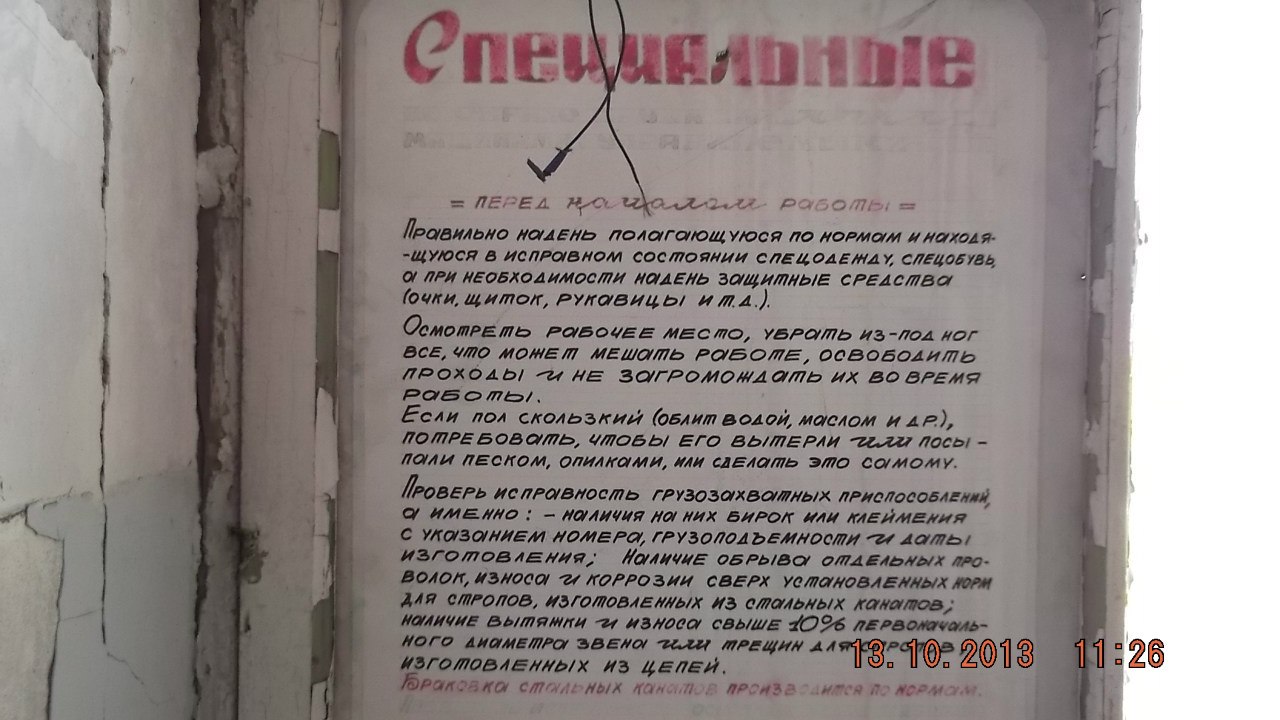 Специальные
= ПЕРЕД началом РАБОТЫ =
Правильно надень полагающуюся по нормам и находя-
-щуюся в исправном состоянии спецодежду, спецобувь,
а при необходимости надень защитные средства
(очки, щиток, рукавицы и т.д.).
Осмотреть рабочее место, убрать из-под ног
все, что может мешать работе, освободить
проходы и не загромождать их во время
работы.
Если пол скользкий (облит водой, маслом и др.),
потребовать, чтобы его вытерли или посы-
пали песком, опилками, или сделать это самому.
Проверь исправность грузозахватных приспособлений,
а именно: - наличия на них бирок или клеймения
с указанием номера, грузоподъемности и даты
изготовления; Наличие обрыва отдельных про-
волок, износа и коррозии сверх установленных норм
для стропов, изготовленных из стальных канатов;
наличие вытяжки и износа свыше 10% первоначаль-
ного диаметра звена или трещин для стропов,
изготовленных из цепей.
Браковка стальных канатов производится по нормам.
13.10.2013 11:26